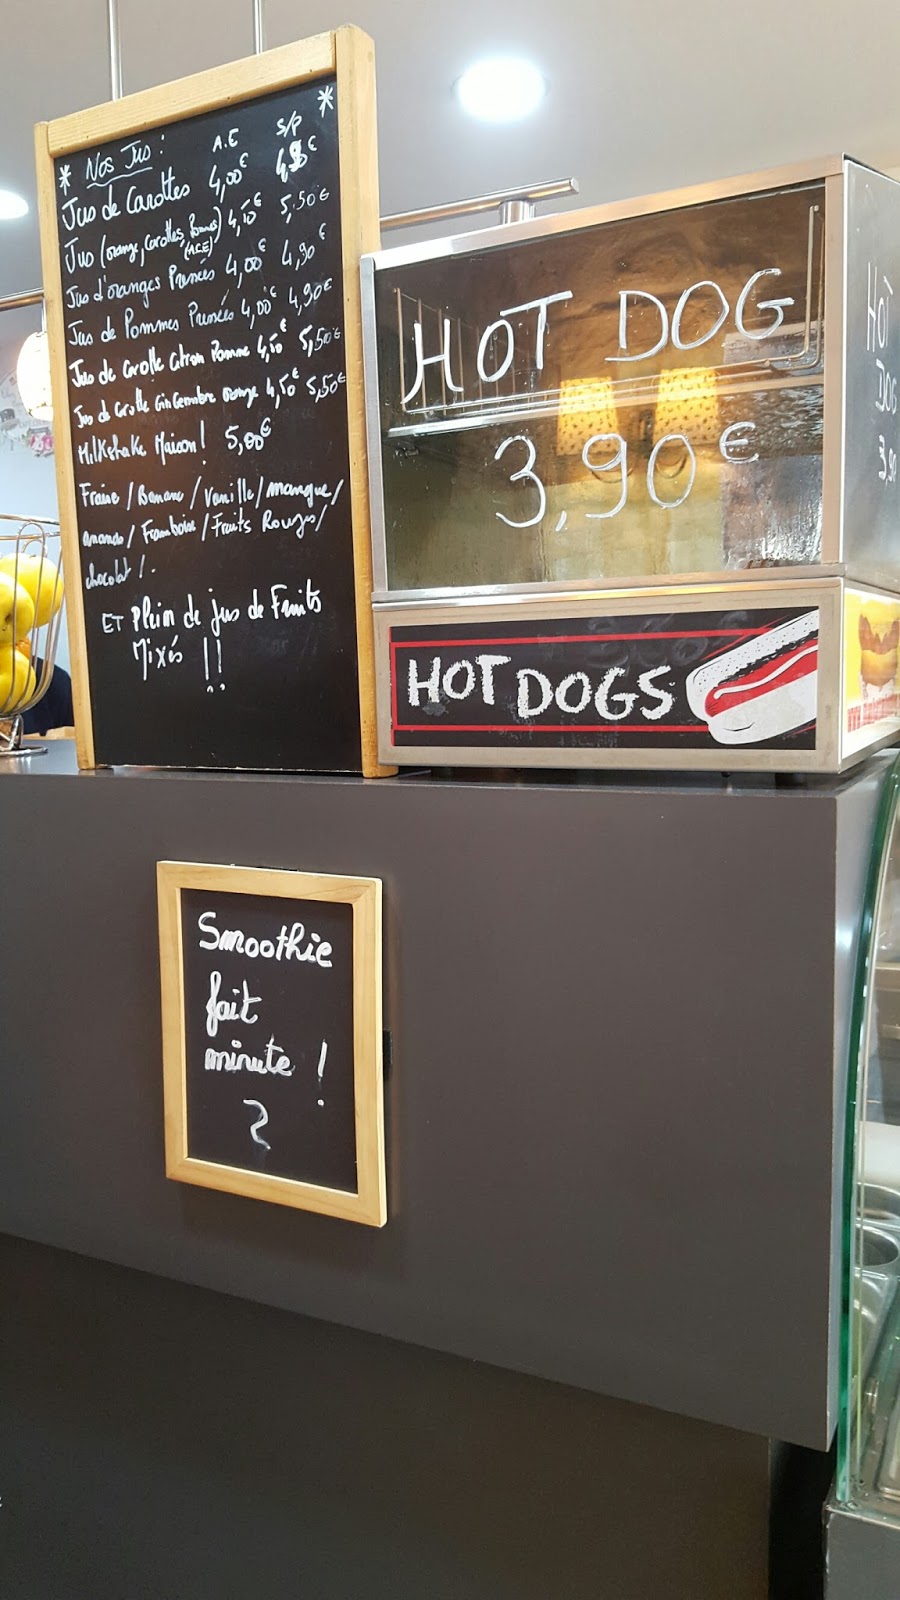 * Nos Jus : A.E S/P *
Jus de Carottes 4,00€
Jus (orange, carottes, Pommes) 4,50€ 5,50€
(ACE)
Jus d'oranges Pressées 4,00€ 4,90€
Jus de Pommes Pressées 4,00€ 4,90€
Jus de Carotte Citron Pomme 4,50€ 5,50€
Jus de Carotte Gingembre orange 4,50€ 5,50€
Milkshake Maison ! 5,00€
Fraise / Banane / Vanille / mangue /
ananas / Framboise / Fruits Rouges /
chocolat / .
ET Plein de jus de Fruits
Mixés !!
HOT DOG
3,90€
HOT DOGS
HOT
DOG
3,90
Smoothie
fait
minute !